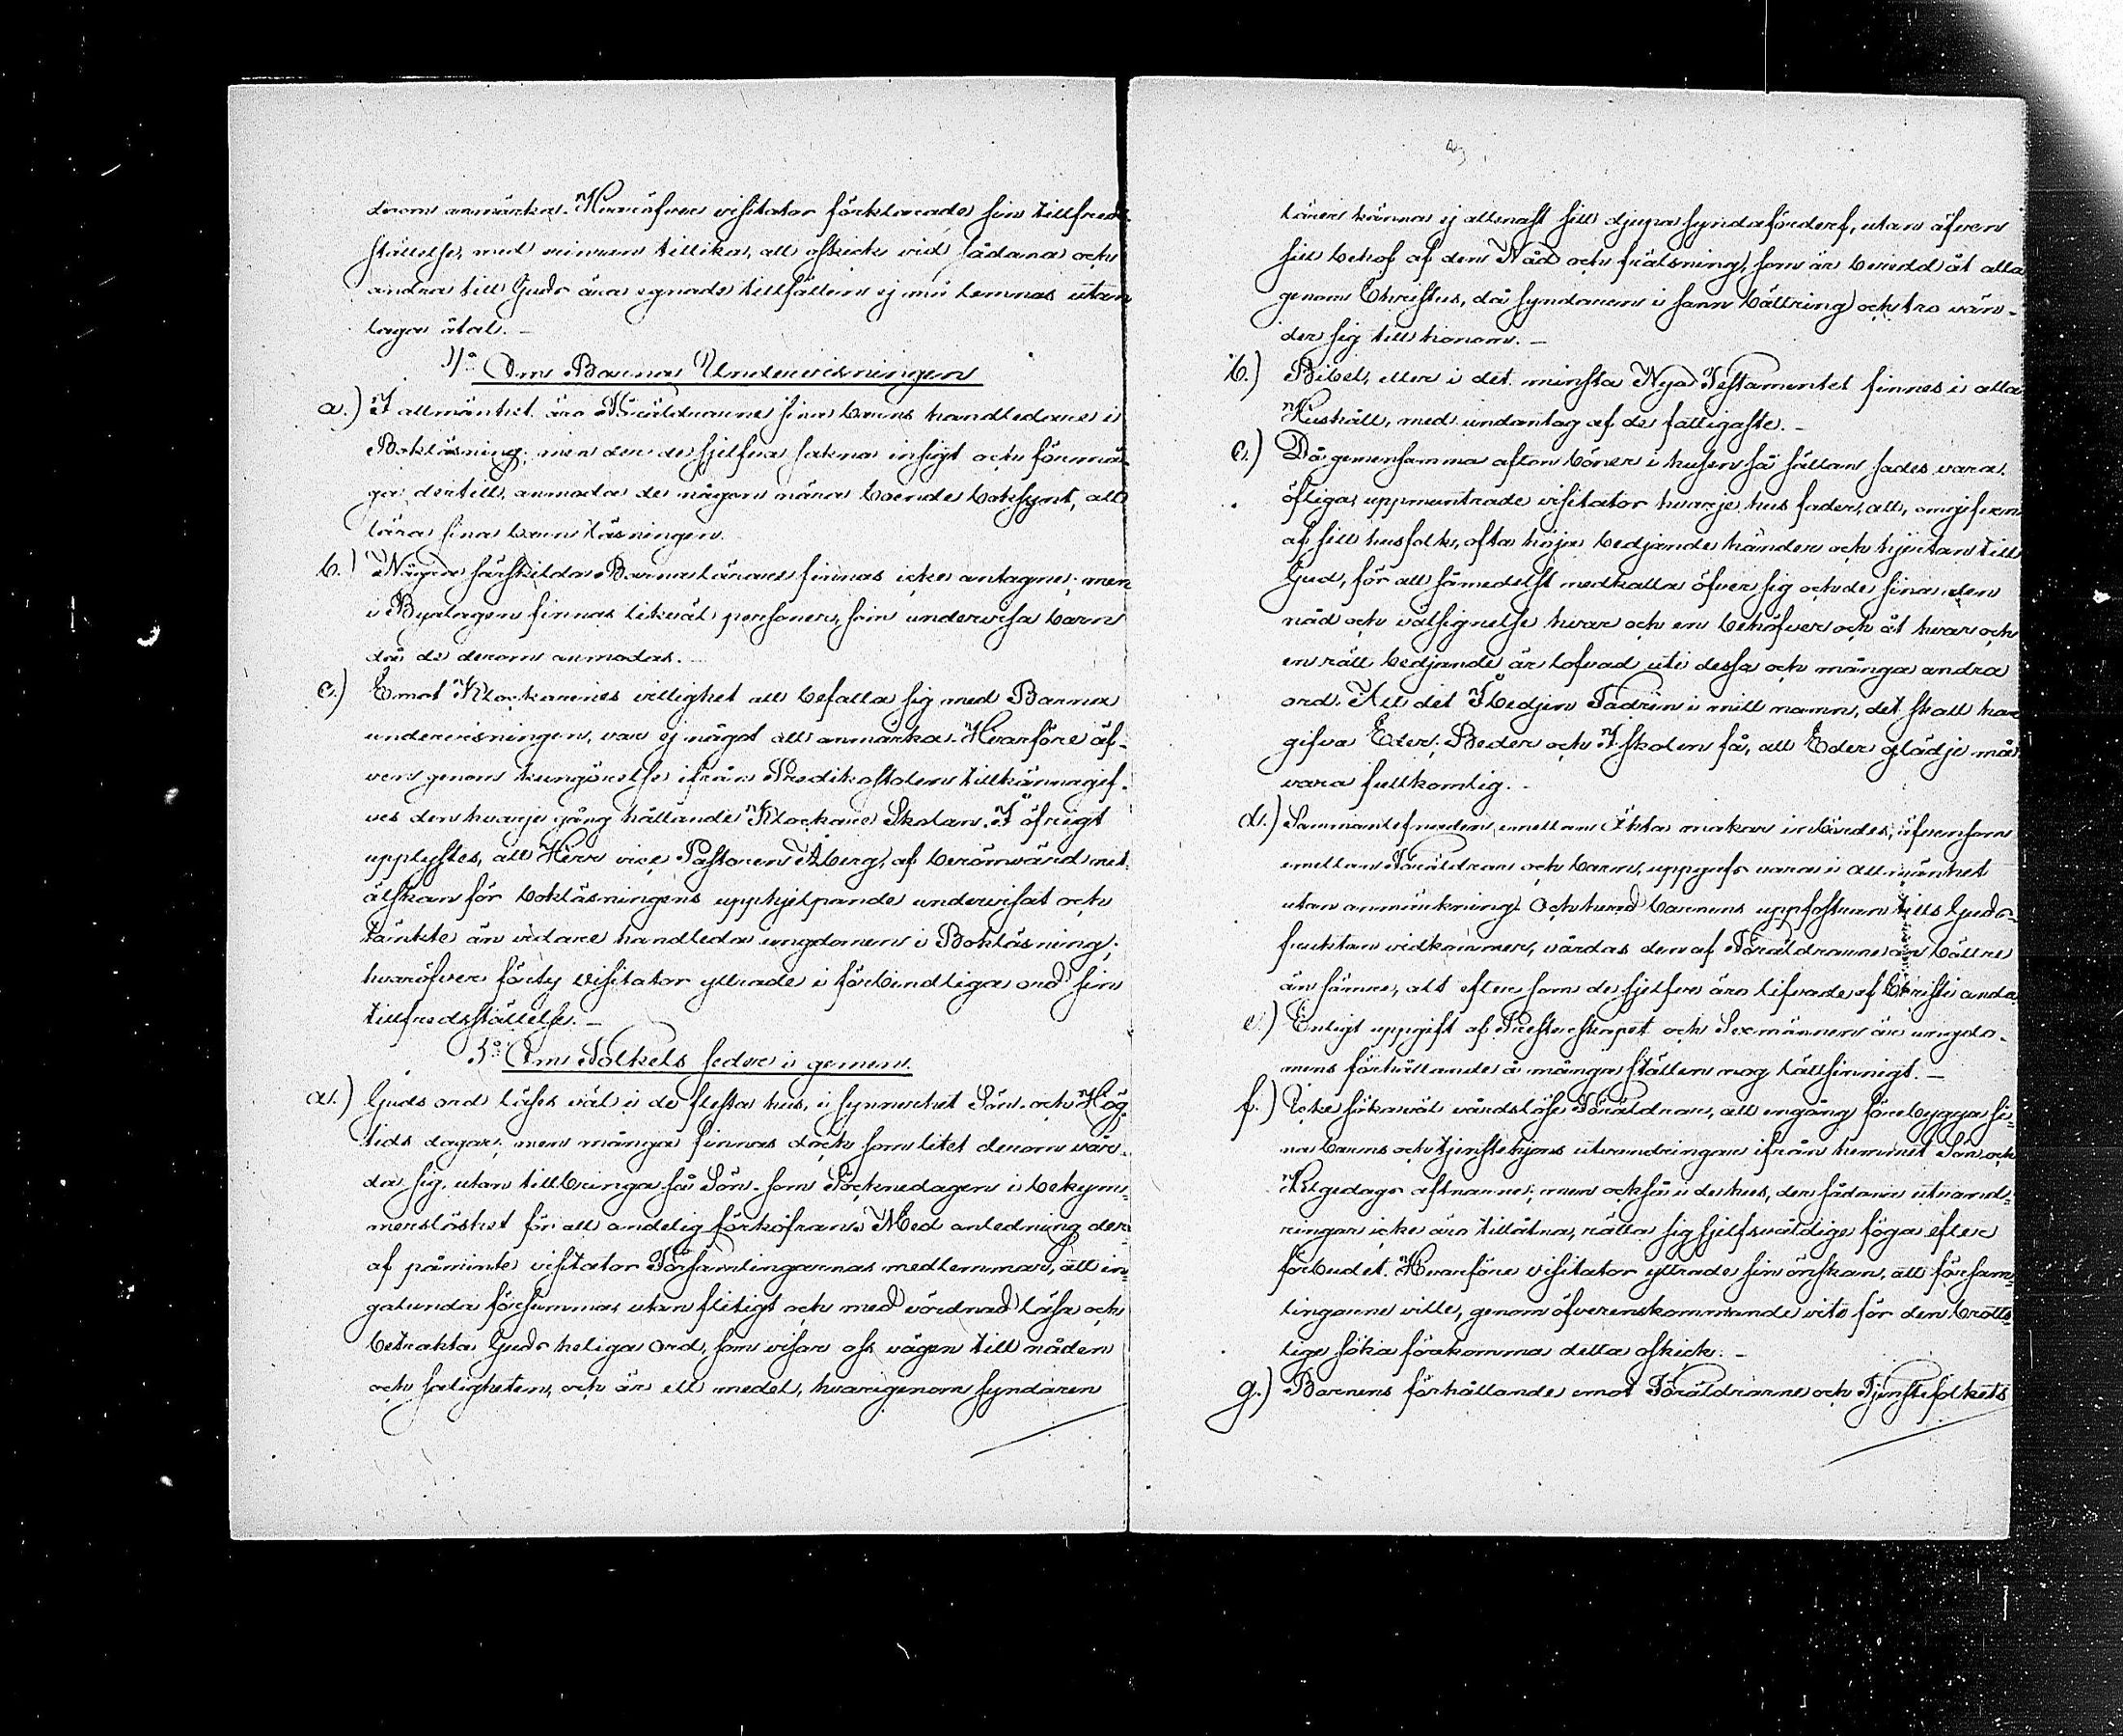 derom anmärka. Hvaröfver visitator förklarade sin tillfreds-
ställelse, med minnen tillika, att oskick vid sådana och
andra till Guds ära egnade tillfällen ej må lemnas utan
laga åtal. –
4:o Om Barna Undervisningen
a.) I allmänhet äro Föräldrarne sina barns handledare i
Bokläsning; men der de sjelfva sakna insigt och förmå-
ga dertill, anmoda de någon nära boende boksynt, att
lära sina barn läsningen.
b.) Några särskilda Barnalärare finnas icke antagne; men
i Byalagen finnas likväl personer, som undervisa barn
då de derom anmodas.
c.) Emot Klockarenes villighet att befatta sig med Barna
undervisningen, var ej något att anmärka. Hvarföre äf-
ven genom kungörelse ifrån Predikostolen tillkännagif-
ves den hvarje gång hållande Klockare Skolan. I öfrigt
upplystes, att Herr vice Pastoren Åberg, af berömvärd nit
älskan för bokläsningens upphjelpande undervisat och
tänkte än vidare handleda ungdomen i Bokläsning;
hvaröfver förty Visitator yttrade i förbindliga ord sin
tillfredsställelse. –
5:o Om Folkets seder i gemen.
a.) Guds ord läses väl i de flesta hus, i synnerhet Sön- och Hög-
tids dagar; men många finnas dock som litet derom vår-
da sig, utan tillbringa så Sön- som Söcknedagen i bekym-
merslöshet för all andelig förkofran. Med anledning der-
af påminte visitator Församlingarnas medlemmar, att in-
galunda försumma, utan flitigt och med vördnad läsa och
betrakta Guds heliga Ord, som visar oss vägen till nåden
och saligheten, och är ett medel, hvarigenom syndaren
lärer känna ej allenast sitt djupa syndaförderf, utan äfven
sitt behof af den Nåd och frälsning, som är beredd åt alla
genom Christus, då syndaren i sann bättring och tro vän-
der sig till honom. –
b.) Bibel, eller i det minsta Nya Testamentet finnes i alla
Hushåll, med undantag af de fattigaste. –
c.) Då gemensamma afton böner i husen så sällan sades vara
öfliga, uppmuntrade visitator hvarje hus fader, att, omgifven
af sitt husfolk, ofta höja bedjande händer och hjertan till
Gud, för att såmedelst nedkalla öfver sig och de sina den
nåd och välsignelse hvar och en behöfver och åt hvar och
en rätt bedjande är lofvad uti dessa och många andra
ord. Allt det I bedjen Fadren i mitt namn, det skall han
gifva Eder; Beder och I skolen få, att Eder glädje må
vara fullkomlig. –
d.) Sammanlefnaden emellan Äkta makar inbördes, äfvensom
emellan Föräldrar och barn, uppgafs vara i allmänhet
utan anmärkning. Och hvad barnens uppfostran till Guds-
fruktan vidkommer, vårdas den af Föräldrarne än bättre
än sämre, allt efter som de sjelfve äro lifvade af Christi anda
e.) Enligt uppgift af Presterskapet och Sexmännen är ungdo-
mens förhållande å många ställen nog lättsinnigt. –
f.) Icke söka väl vårdslöse Föräldrar, att engång förebygga si-
na barns och tjenstehjons utvandringar ifrån hemmet Sön och
Helgedags aftnarne; men också i de hus, der sådana utvand-
ringar icke äro tillåtna, rätta sig sjelfsvåldige föga efter
förbudet. Hvarföre Visitator yttrade sin önskan, att försam-
lingarne ville, genom öfverenskommande vite för den brotts-
lige söka förekomma detta oskick. –
g.) Barnens förhållande emot Föräldrarne och Tjenstefolkets